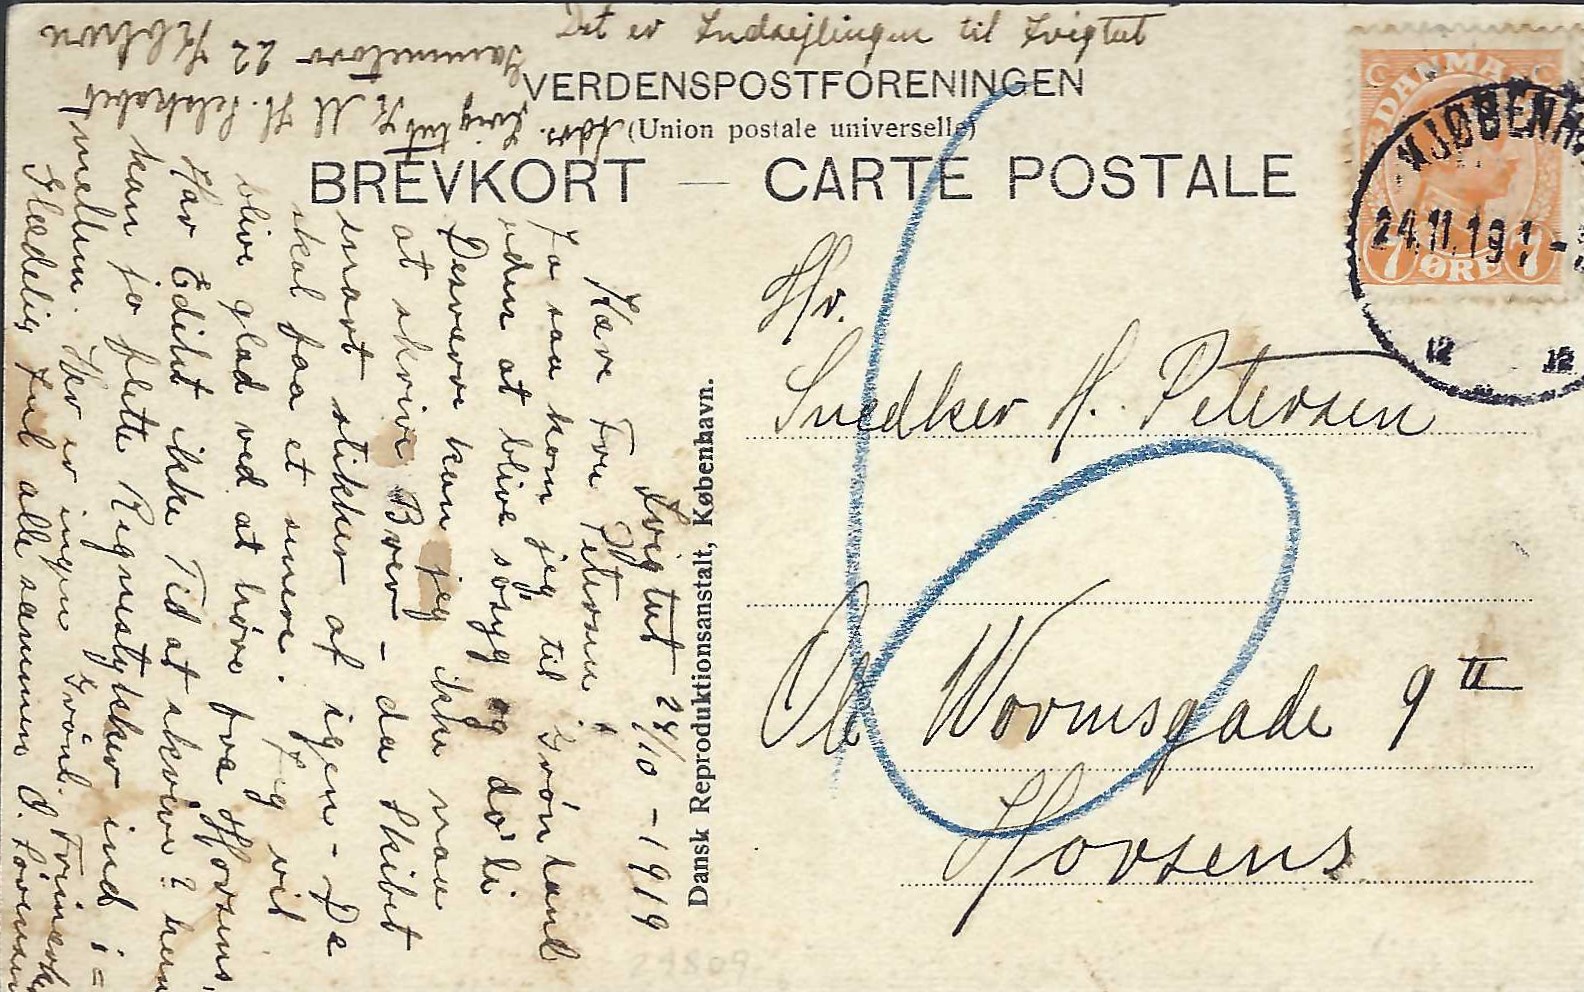 Det er Indsejlingen til Ivigtut
VERDENSPOSTFORENINGEN
(Union postale universelle)
BREVKORT — CARTE POSTALE
DANMARK
7 ØRE 7
KJØBENH
24.11.19 1-
12 12
Hr.
Snedker H. Petersen
Ole Wormsgade 9 II
Horsens
Dansk Reproduktionsanstalt, København.
Ivigtut 24/10 - 1919
Kære Fru Petersen!
Ja saa kom jeg til Grönland
uden at blive søsyg og
Desværre kan jeg ikke naa
at skrive Brev - da Skibet
snart stikker af igen - De
skal faa et senere. Jeg vil
blive glad ved at høre fra Horsens,
Har Edith ikke Tid at skrive? hun
kan jo flette Regnestykker ind i=
mellem. Her er ingen Grönl. Frimærk
Glædelig Jul alle sammen
Adr. Ivigtut K M H. Selskabet
Gammeltorv 22 Kbhvn
29809